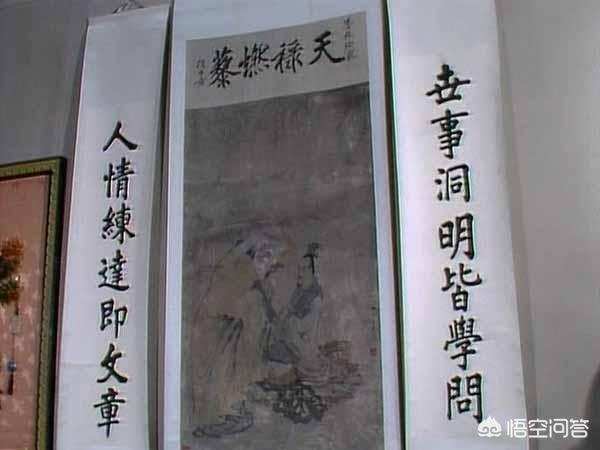 天祿燃藜
世事洞明皆學問
人情練達即文章
悟空问答